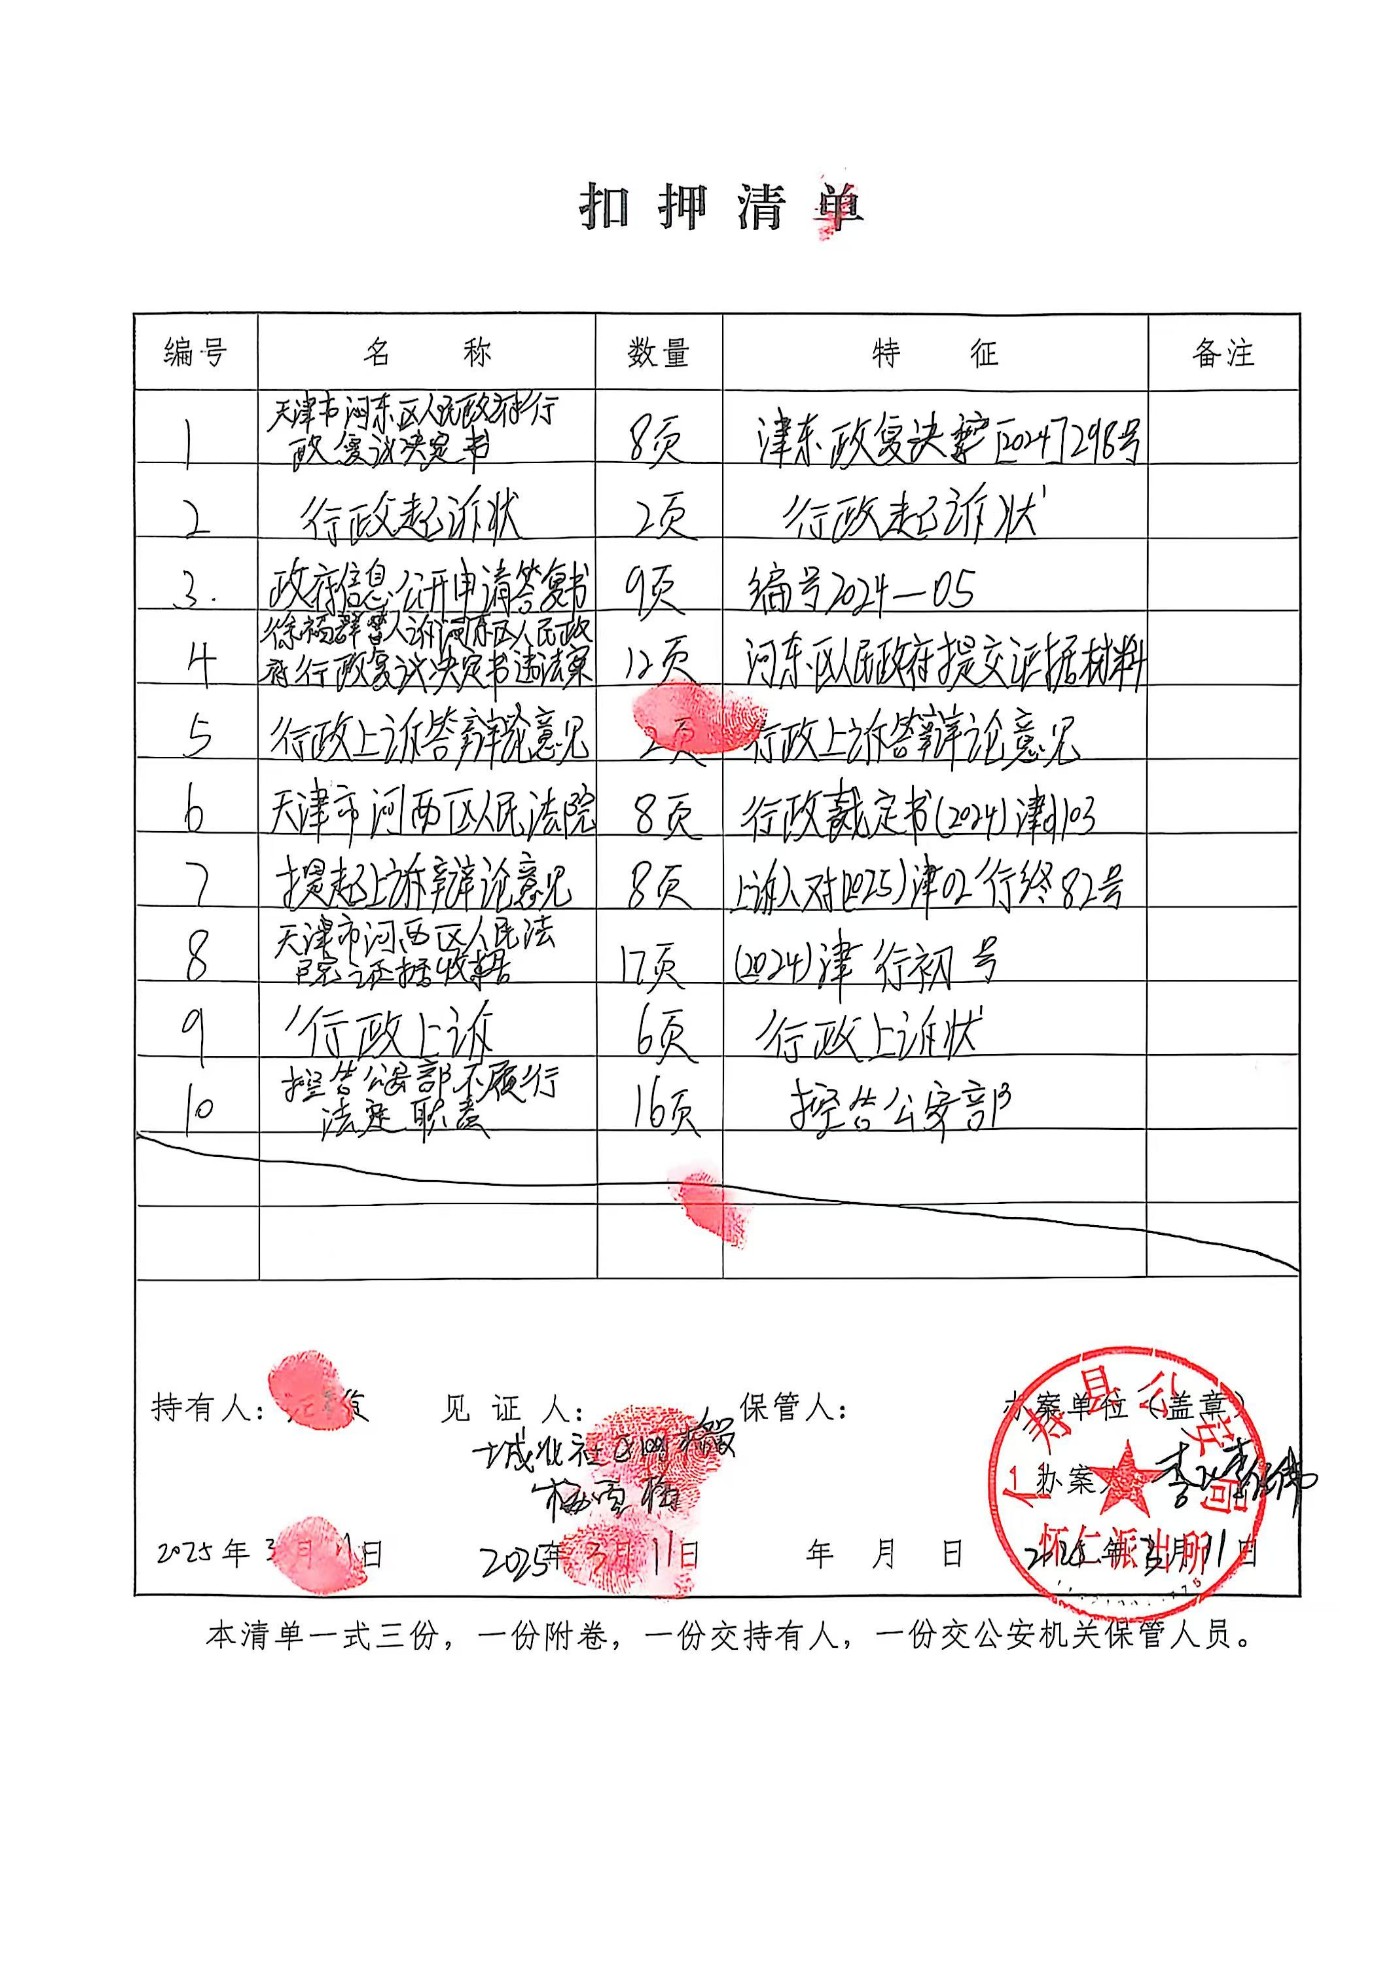 扣押清单
编号 名称 数量 特征 备注
1 天津市河东区人民政府行
政复议决定书 8页 津东政复决字[2024]298号
2 行政起诉状 2页 行政起诉状
3. 政府信息公开申请答复书 9页 编号2024—05
4 徐福群等人诉河东区人民政
府行政复议决定书违法案 12页 河东区人民政府提交证据材料
5 行政上诉答辩论意见 2页 行政上诉答辩论意见
6 天津市河西区人民法院 8页 行政裁定书(2024)津0103
7 提起上诉辩论意见 8页 上诉人对(2025)津02行终82号
8 天津市河西区人民法
院证据收据 17页 (2024)津 行初 号
9 行政上诉 6页 行政上诉状
10 控告公安部不履行
法定职责 16页 控告公安部
持有人: 见证人: 保管人: 办案单位(盖章)
城北社区网格
办案人
仁寿县公安局
怀仁派出所
2025年3月11日 2025年3月11日 年 月 日 2025年3月11日
本清单一式三份，一份附卷，一份交持有人，一份交公安机关保管人员。